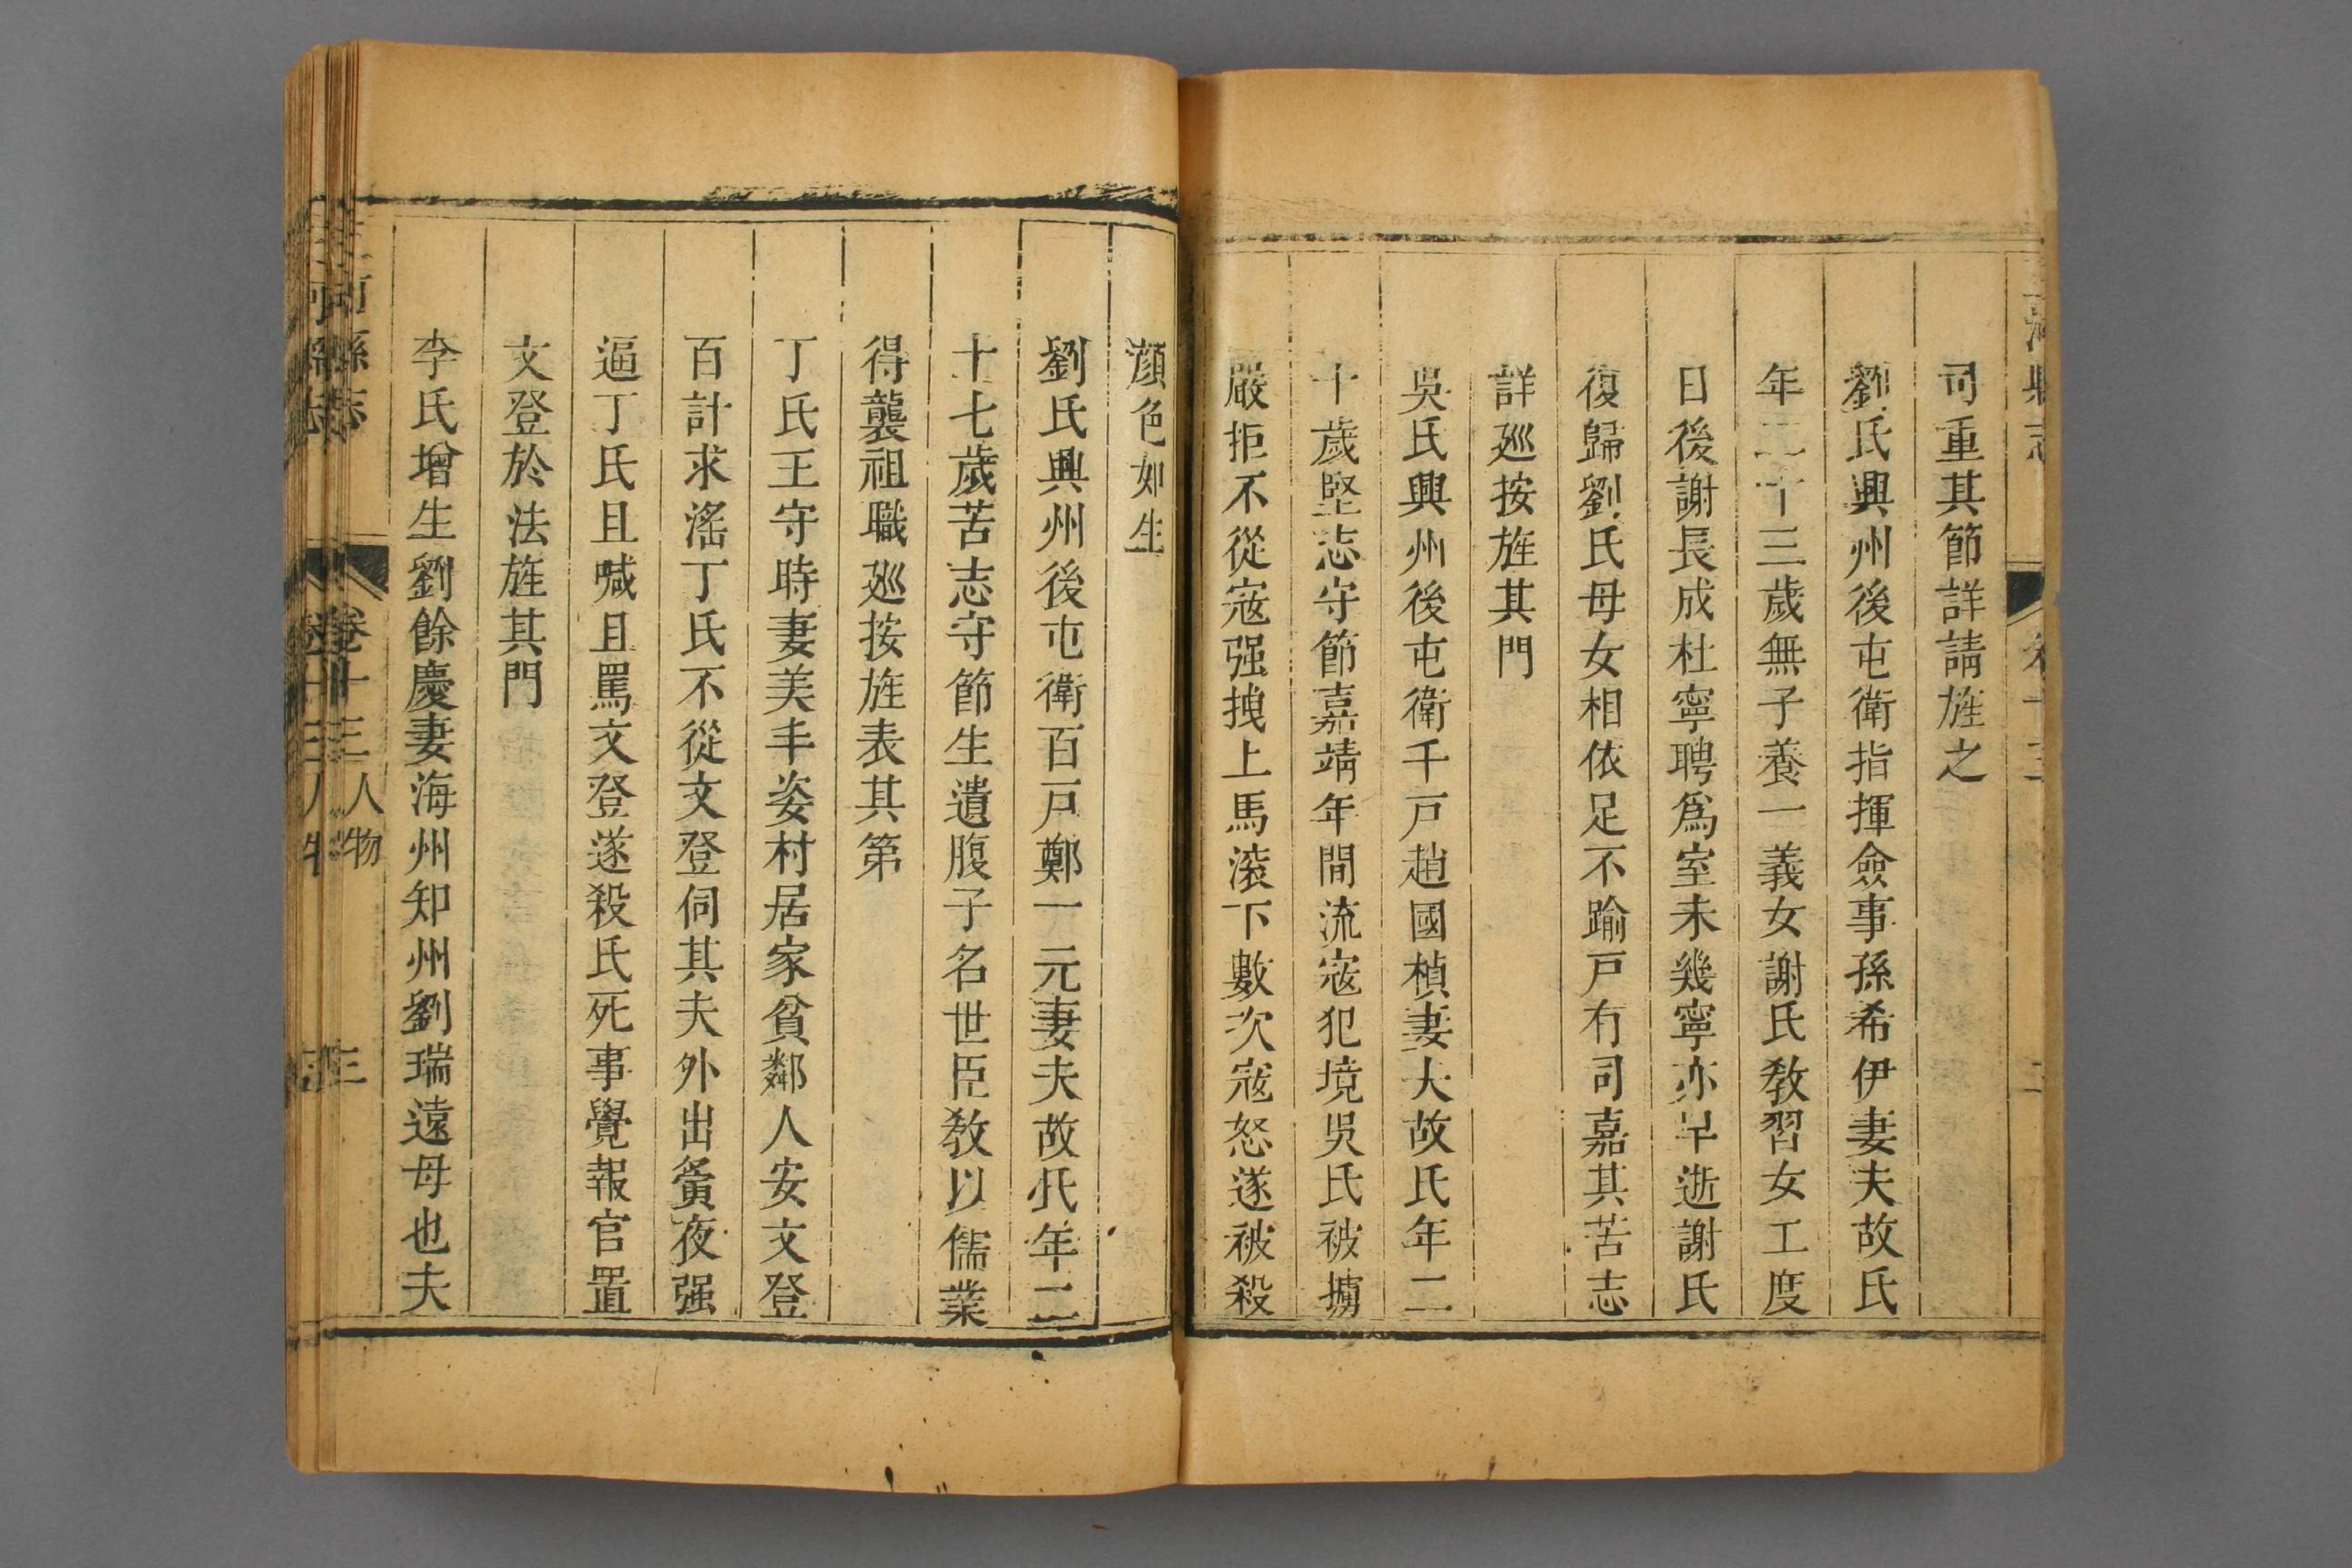 三河縣志
司重其節詳請旌之
劉氏興州後屯衛指揮僉事孫希伊妻夫故氏
年二十三歲無子養一義女謝氏教習女工度
日後謝長成杜寧聘爲室未幾寧亦早逝謝氏
復歸劉氏母女相依足不踰戸有司嘉其苦志
詳廵按旌其門
吳氏興州後屯衛千戸趙國楨妻夫故氏年二
十歲堅志守節嘉靖年間流宼犯境吳氏被擄
嚴拒不從宼强拽上馬滚下數次宼怒遂被殺
顔色如生
劉氏興州後屯衛百戸鄭一元妻夫故氏年二
十七歲苦志守節生遺腹子名世臣教以儒業
得襲祖職廵按旌表其第
丁氏王守時妻美丰姿村居家貧鄰人安文登
百計求滛丁氏不從文登伺其夫外出夤夜强
逼丁氏且喊且罵文登遂殺氏死事覺報官置
文登於法旌其門
李氏增生劉餘慶妻海州知州劉瑞遠母也夫
三河縣志 卷十三 人物 三